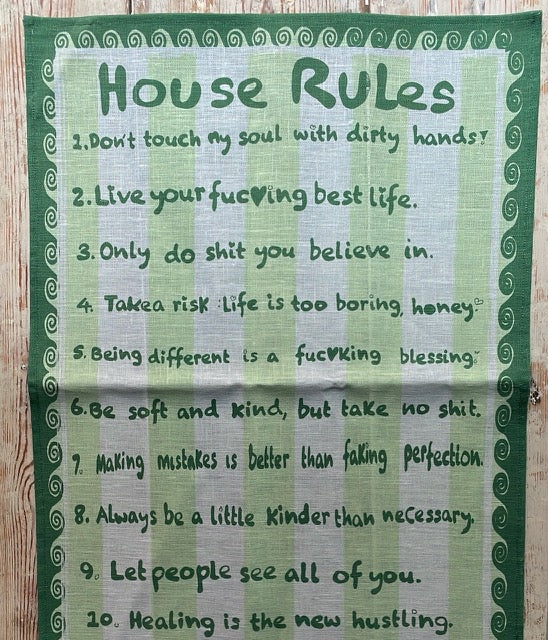 House Rules
1. Don't touch my soul with dirty hands!
2. Live your fuc♥ing best life.
3. Only do shit you believe in.
4. Take a risk. Life is too boring, honey.
5. Being different is a fuc♥king blessing.
6. Be soft and kind, but take no shit.
7. Making mistakes is better than faking perfection.
8. Always be a little kinder than necessary.
9. Let people see all of you.
10. Healing is the new hustling.